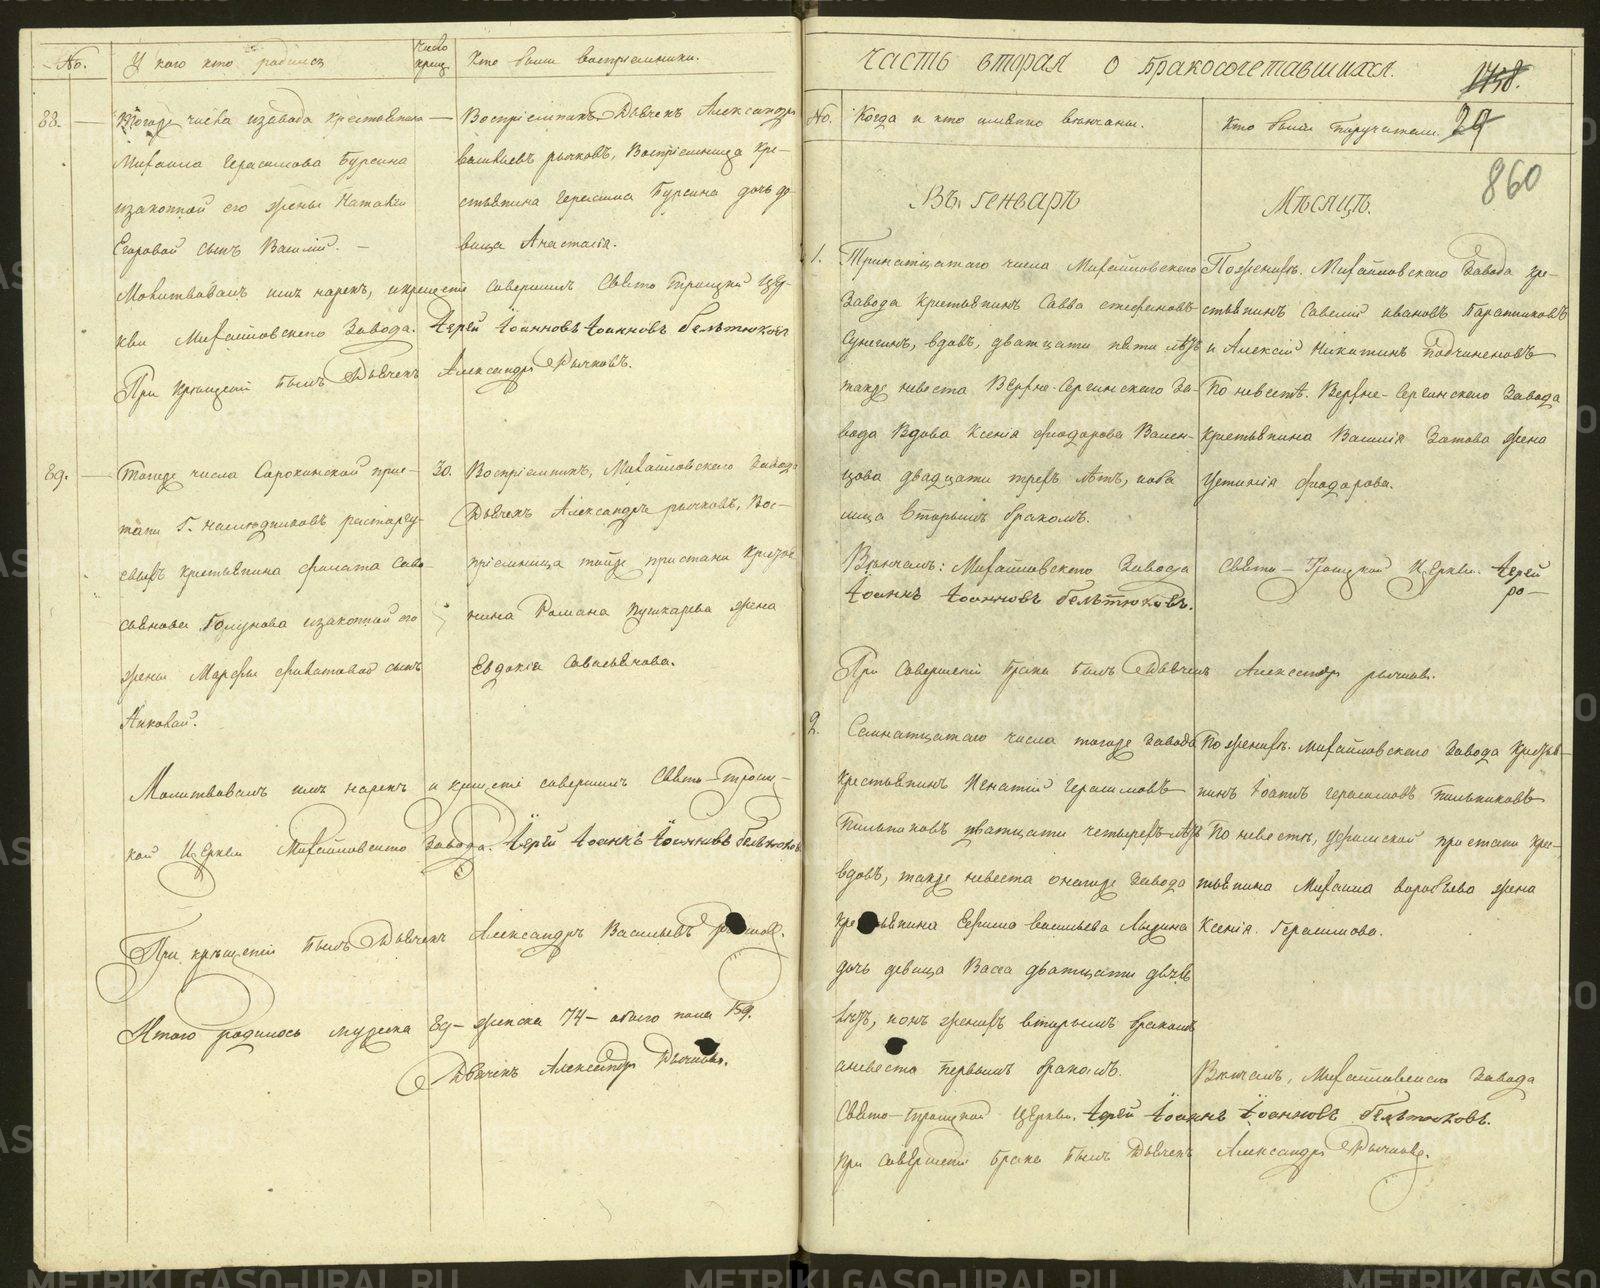 No.
У кого кто родился
Число крещ.
Кто были воспріемники.
88.
Тогоже числа изавода крестьянина
Михаила Герасимова Бурсина
изаконной его жены Наталіи
Егоровой сынъ Василій. —
Воспріемникъ Дьячекъ Александръ
Васильевъ рычковъ, Воспріемница кре-
стьянина Герасима Бурсина дочь де-
вица Анастасія.
Молитвовалъ имя нарекъ, икрещеніе совершилъ Свято Троицкой Цер-
кви Михайловскаго Завода. Іерей Іоанновъ Іоанновъ бельтюковъ
При Крещеніи былъ Дьячекъ Александръ Рычковъ.
89.
Тогоже числа Сорокинской прис-
тани Г. наследниковъ расторгу-
евыхъ крестьянина филата Саве-
льянова Голунова изаконной его
жены Марфы филатовой сынъ
30.
Воспріемникъ, Михайловскаго Завода
Дьячекъ Александръ рычковъ, Вос-
пріемница тойже пристани Крестья
нина Романа Пушкарева жена
Евдокія Савельянова.
Молитвовалъ имя нарекъ и крещеніе совершилъ Свято-Троиц-
кой Церкви Михайловскаго Завода. Іерей Іоаннъ Іоанновъ бельтюковъ
При крещеніи былъ Дьячекъ Александръ Васильевъ
Итого родилось мужеска 89 — женска 74 — обоего пола 159.
Дьячекъ Александръ Рычковъ.
Часть вторая о бракосочетавшихся.
1758.
29
860
No.
Когда и кто имянно вѣнчаны.
Кто были Поручители.
Въ Генварѣ
Мѣсяцѣ.
1.
Тринатцатаго числа Михайловскаго
Завода крестьянинъ Савва стефановъ
вдовъ, дватцати пяти лѣтъ
также невеста Верхне-Сергинскаго За-
вода Вдова Ксенія фиодорова Вален-
цова двадцати трехъ лѣтъ, иоба
лица вторымъ бракомъ.
По женихѣ. Михайловскаго Завода кре-
стьянинъ Савелий ивановъ Паранниковъ
и Алексій Никитинъ Подчиненовъ
По невестѣ. Верхне-Сергинскаго Завода
Крестьянина Василія Затова жена
Устинія фиодорова.
Вѣнчалъ: Михайловскаго Завода Свято-Троицкой Церкви. Іерей
Іоаннъ Іоанновъ бельтюковъ.
При Совершеніи брака былъ Дьячекъ Александръ рычковъ.
2.
Семнатцатаго числа тогоже Завода
Крестьянинъ Игнатій Герасимовъ
Пильниковъ дватцати четырехъ лѣтъ
вдовъ, также невеста оногоже Завода
крестьянина Ефима васильева Лызина
дочь девица Васса дватцати двухъ
лѣтъ, ионъ женихъ вторымъ бракомъ
аневеста первымъ бракомъ.
По женихѣ. Михайловскаго Завода Крестья-
нинъ Іоаннъ герасимовъ Пильниковъ
По невестѣ, уфимской пристани кре-
тьянина Михаила воробьева жена
Ксенія Герасимова.
Вѣнчалъ, Михайловскаго Завода
Свято-Троицкой Церкви. Іерей Іоаннъ Іоанновъ бельтюковъ.
При совершеніи брака былъ Дьячекъ Александръ Рычковъ.